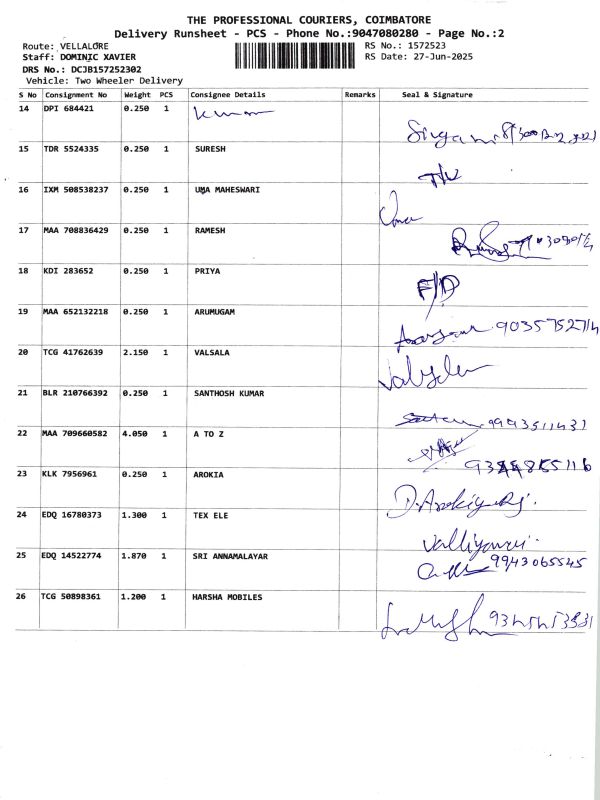 THE PROFESSIONAL COURIERS, COIMBATORE
Delivery Runsheet - PCS - Phone No.:9047080280 - Page No.:2
Route: VELLALORE
RS No.: 1572523
Staff: DOMINIC XAVIER
RS Date: 27-Jun-2025
DRS No.: DCJB157252302
Vehicle: Two Wheeler Delivery
S No Consignment No Weight PCS Consignee Details Remarks Seal & Signature
14 DPI 684421 0.250 1 Kumar
15 TDR 5524335 0.250 1 SURESH
16 IXM 508538237 0.250 1 UMA MAHESWARI
Uma
17 MAA 708836429 0.250 1 RAMESH
18 KDI 283652 0.250 1 PRIYA
F/D
19 MAA 652132218 0.250 1 ARUMUGAM
9035752714
20 TCG 41762639 2.150 1 VALSALA
Valsala
21 BLR 210766392 0.250 1 SANTHOSH KUMAR
9943511431
22 MAA 709660582 4.050 1 A TO Z
23 KLK 7956961 0.250 1 AROKIA
24 EDQ 16780373 1.300 1 TEX ELE
25 EDQ 14522774 1.870 1 SRI ANNAMALAYAR
9943065545
26 TCG 50898361 1.200 1 HARSHA MOBILES